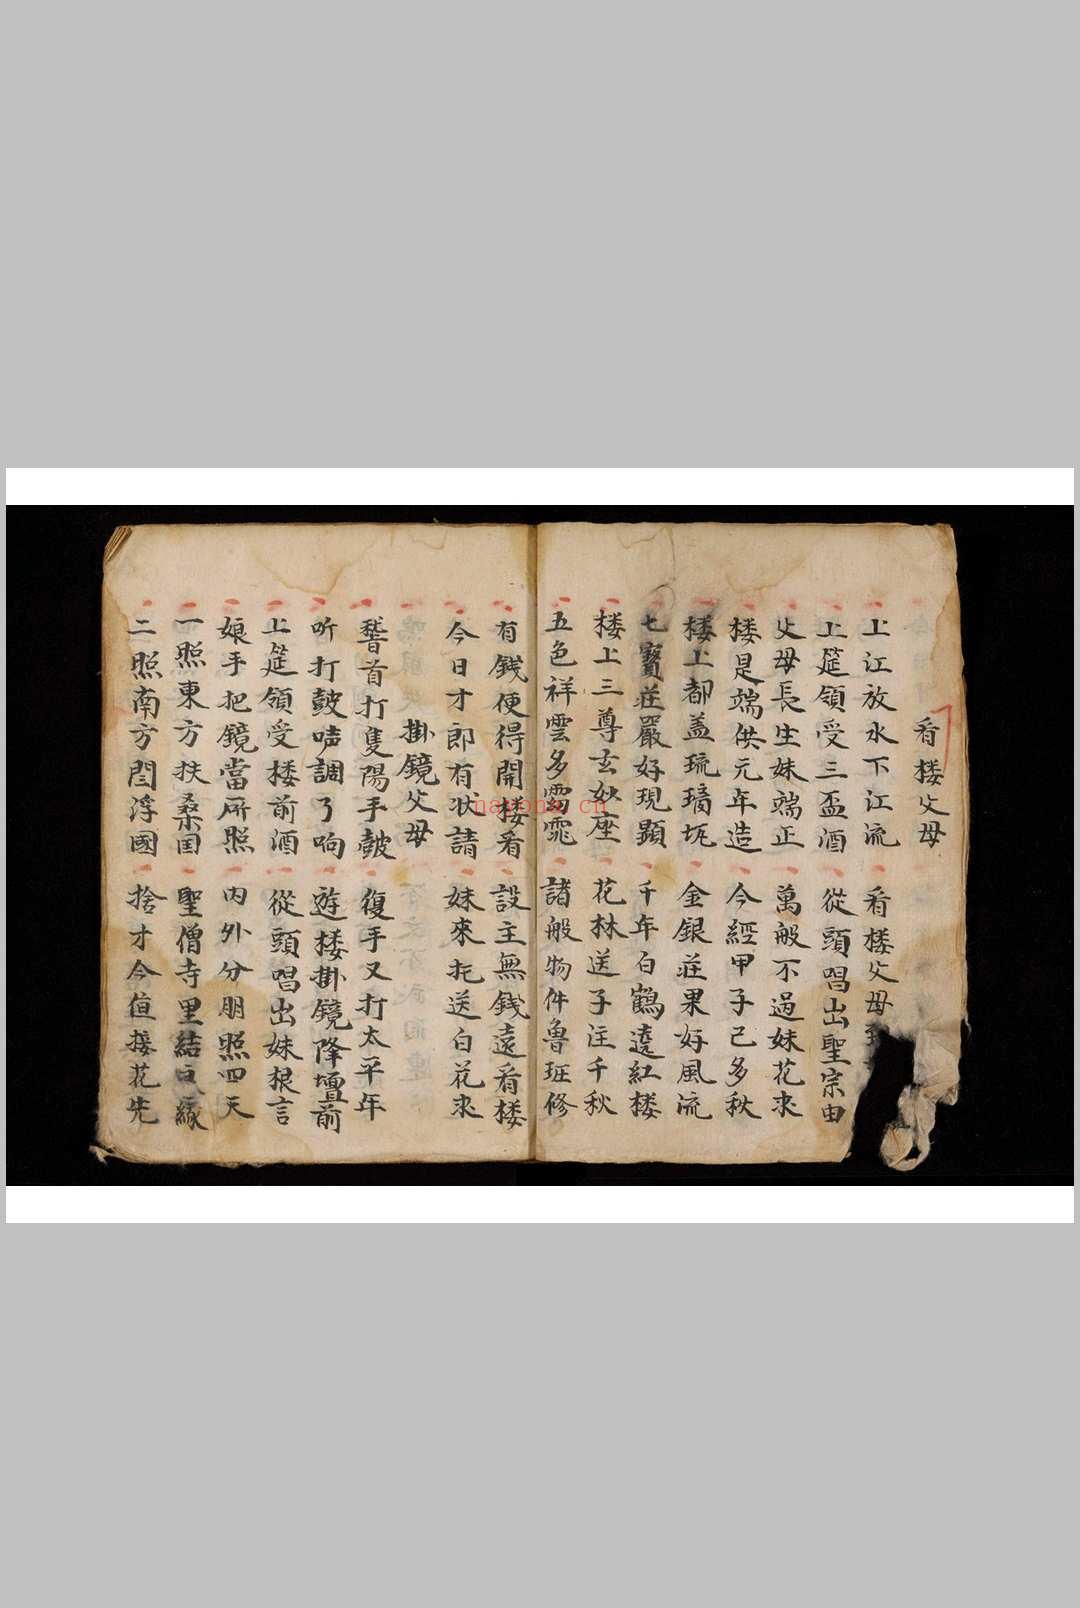 看楼父母
上江放水下江流 看楼父母
上筵領受三盃酒 從頭唱出聖宗由
父母長生妹端正 萬般不過妹花来
楼是端供元年造 今經甲子已多秋
楼上都盖琉璃坭 金銀莊果好風流
七寳莊嚴好現顕 千年白鶴遶紅楼
楼上三尊玄妙座 花林送子注千秋
五色祥雲多 諸般物件魯班修
有錢便得開楼看 設主無錢遠看楼
今日才郎有状請 妹來托送白花来
掛鏡父母
首打隻陽手皷 復手又打太平年
听打皷唭調了响 遊楼掛鏡降壇前
上筵領受楼前酒 從頭唱出妹根言
娘手把鏡當所照 内外分朋照四天
一照東方扶桑国 聖僧寺里結良緣
二照南方閻浮國 捨才今值接花先
nayona.cn